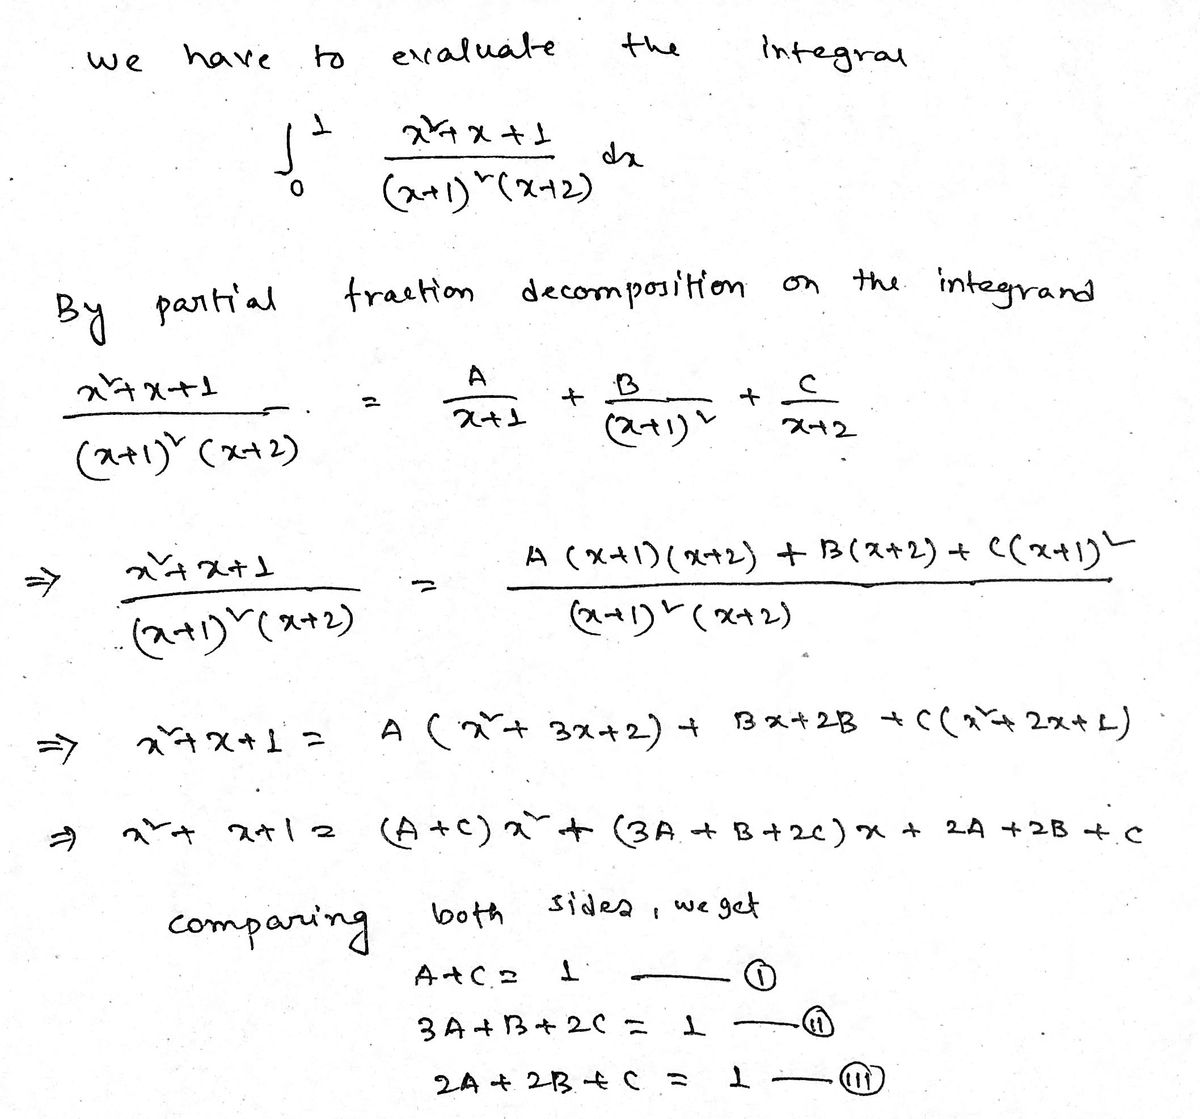 we have to evaluate the integral
∫₀¹ (x²+x+1)/((x+1)²(x+2)) dx
By partial fraction decomposition on the integrand
(x²+x+1)/((x+1)²(x+2)) = A/(x+1) + B/(x+1)² + C/(x+2)
⇒ (x²+x+1)/((x+1)²(x+2)) = (A(x+1)(x+2) + B(x+2) + C(x+1)²)/((x+1)²(x+2))
⇒ x²+x+1 = A(x²+3x+2) + Bx+2B + C(x²+2x+1)
⇒ x²+x+1 = (A+C)x² + (3A+B+2C)x + 2A+2B+C
comparing both sides, we get
A+C = 1 — (i)
3A+B+2C = 1 — (ii)
2A+2B+C = 1 — (iii)